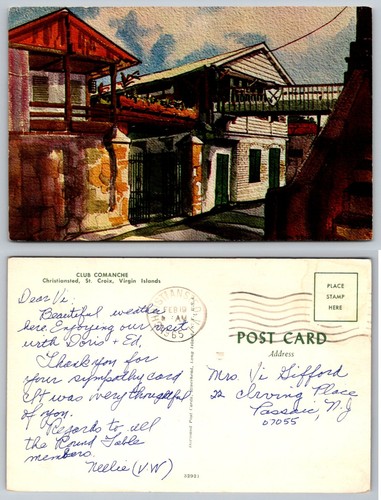 CLUB COMANCHE
Christiansted, St. Croix, Virgin Islands
Dear Vi:
Beautiful weather
here. Enjoying our visit
with Doris + Ed.
Thank you for
your sympathy card
It was very thoughtful
of you.
Regards to all
the Round Table
members.
Nellie (VW)
FEB 19
AM
PLACE
STAMP
HERE
POST CARD
Address
Mrs Vi Gifford
22 Irving Place
Passaic, N.J
07055